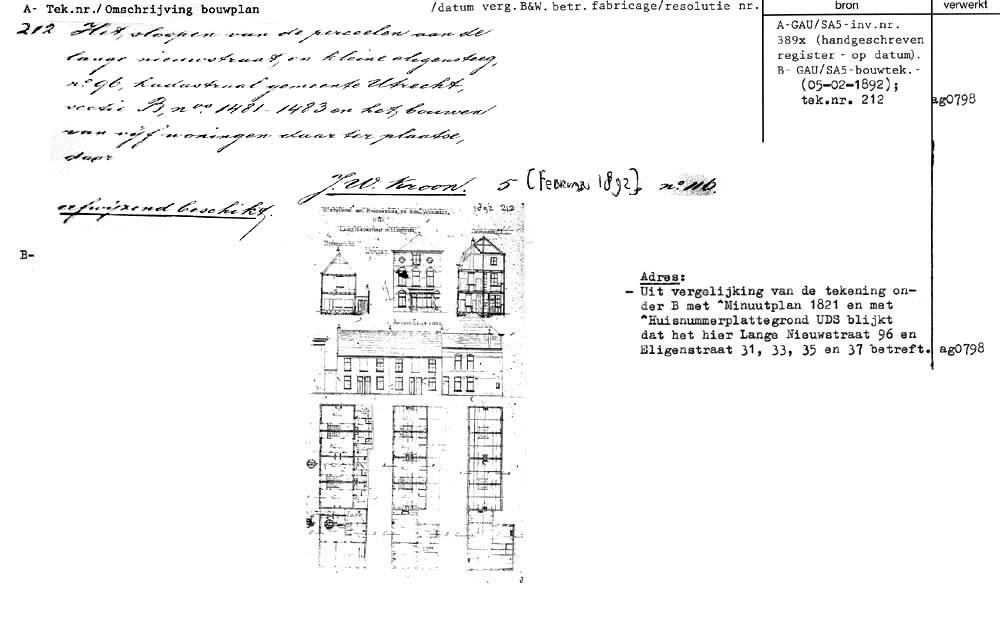 A- Tek.nr./Omschrijving bouwplan /datum verg.B&W. betr. fabricage/resolutie nr. bron verwerkt
212 Het sloopen van de perceelen aan de
lange nieuwstraat, en kleine eligensteeg,
no. 96, kadastraal gemeente Utrecht,
sectie B, nos. 1481-1483 en het bouwen
van vijf woningen daar ter plaatse,
door
J. W. Kroon. 5 [Februari 1892] no. 116.
afwijzend beschikt.
A-GAU/SA5-inv.nr.
389x (handgeschreven
register - op datum).
B- GAU/SA5-bouwtek.-
(05-02-1892);
tek.nr. 212 ag0798
B-
1892 212
Adres:
- Uit vergelijking van de tekening on-
der B met ^Minuutplan 1821 en met
^Huisnummerplattegrond UDS blijkt
dat het hier Lange Nieuwstraat 96 en
Eligenstraat 31, 33, 35 en 37 betreft. ag0798